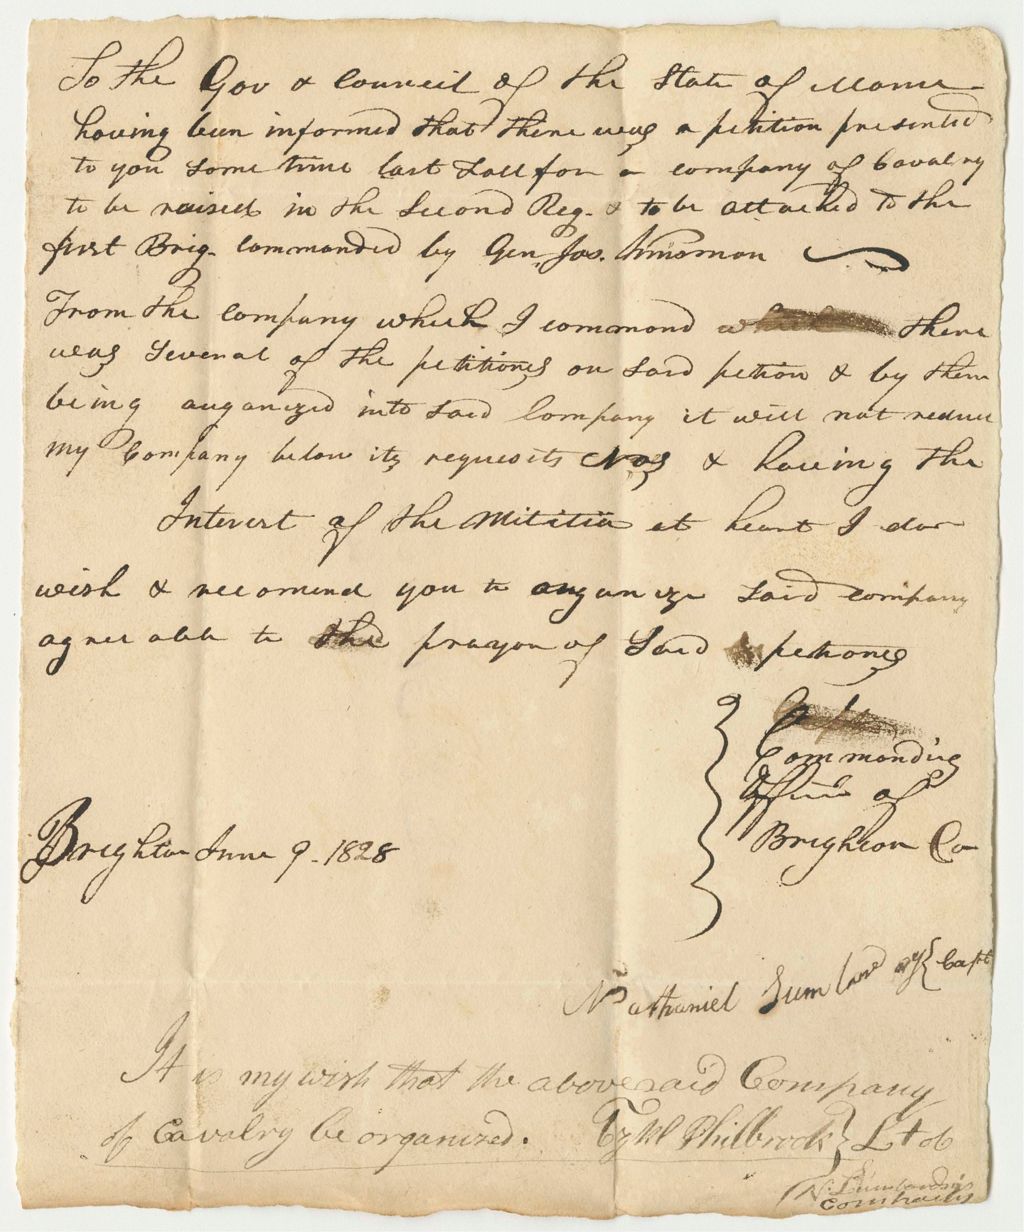 To the Gov & Council of the State of Maine
having been informed that there was a petition presented
to you some time last Fall for a company of Cavalry
to be raised in the Second Reg. & to be attached to the
first Brig. commanded by Gen. Jos. Kinsman
From the company which I command there
was several of the petitiones on said petion & by them
being auganized into said Company it will not reduce
my Company below its requesits Nos & having the
Interest of the Militia at heart I dow
wish & recomend you to auganize said company
agreeable to the prayor of said petiones
Commanding
Officer of
Brighton Co
Brighton June 9. 1828
Nathaniel Lumbard Capt
It is my wish that the abovesaid Company
of Cavalry be organized. Ezkl Philbrock} Lt of
N. Lumbard's
Company